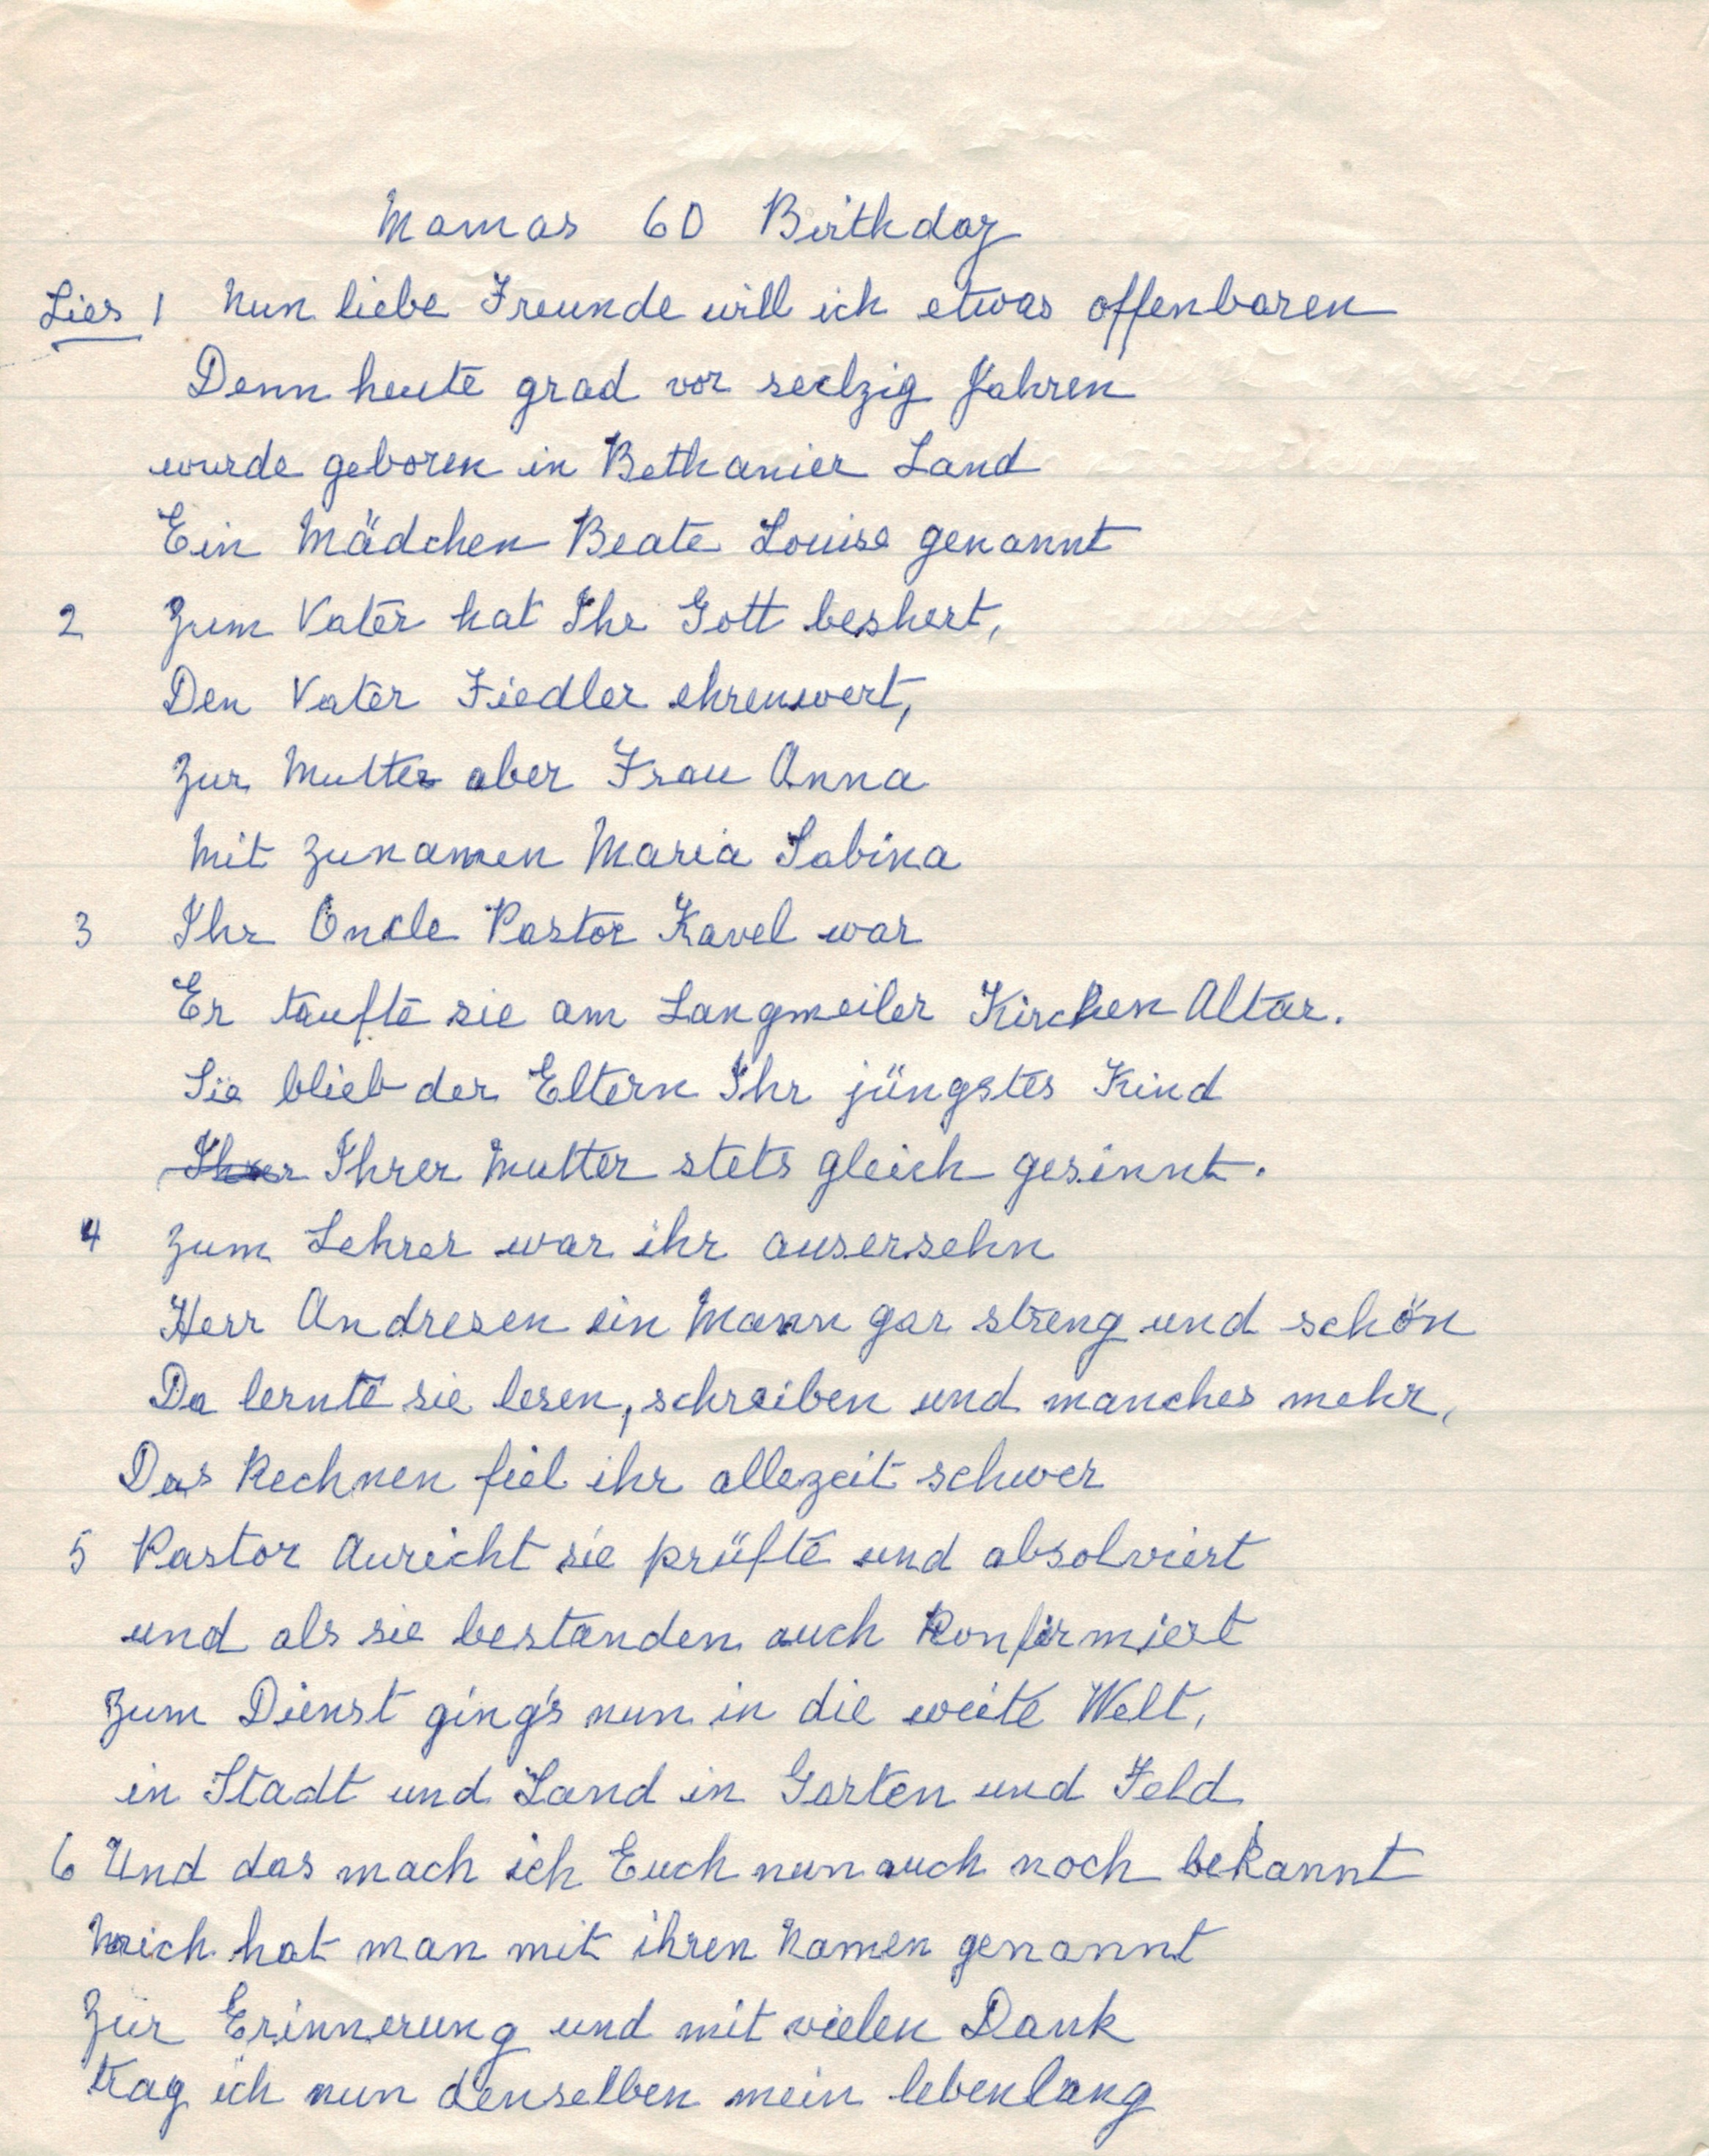 Mamas 60 Birthday
Lies 1 Nun liebe Freunde will ich etwas offenbaren
Denn heute grad vor sechzig Jahren
wurde geboren in Bethanier Land
Ein Mädchen Beate Louise genannt
2 Zum Vater hat Ihr Gott beshert,
Den Vater Fiedler ehrenwert,
Zur Mutter aber Frau Anna
Mit zunamen Maria Sabina
3 Ihr Oncle Pastor Kavel war
Er taufte sie am Langmeiler Kirchen Altar.
Sie blieb der Eltern Ihr jüngstes Kind
Ihrer Ihrer Mutter stets gleich gesinnt.
4 Zum Lehrer war ihr ausersehn
Herr Andresen ein Mann gar streng und schön
Da lernte sie lesen, schreiben und manches mehr,
Das Rechnen fiel ihr allezeit schwer
5 Pastor Auricht sie prüfte und absolviert
und als sie bestanden auch Konfirmiert
Zum Dienst ging's nun in die weite Welt,
in Stadt und Land in Garten und Feld
6 Und das mach ich Euch nun auch noch bekannt
Mich hat man mit ihren Namen genannt
Zur Erinnerung und mit vielen Dank
trag ich nun denselben mein lebenlang